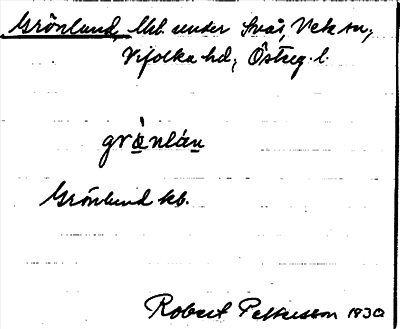 Grönlund, lht. under Svås, Veta sn,
Vifolka hd, Östreg. l.
grànlán
Grönlund kb.
Robert Pettersson 1930